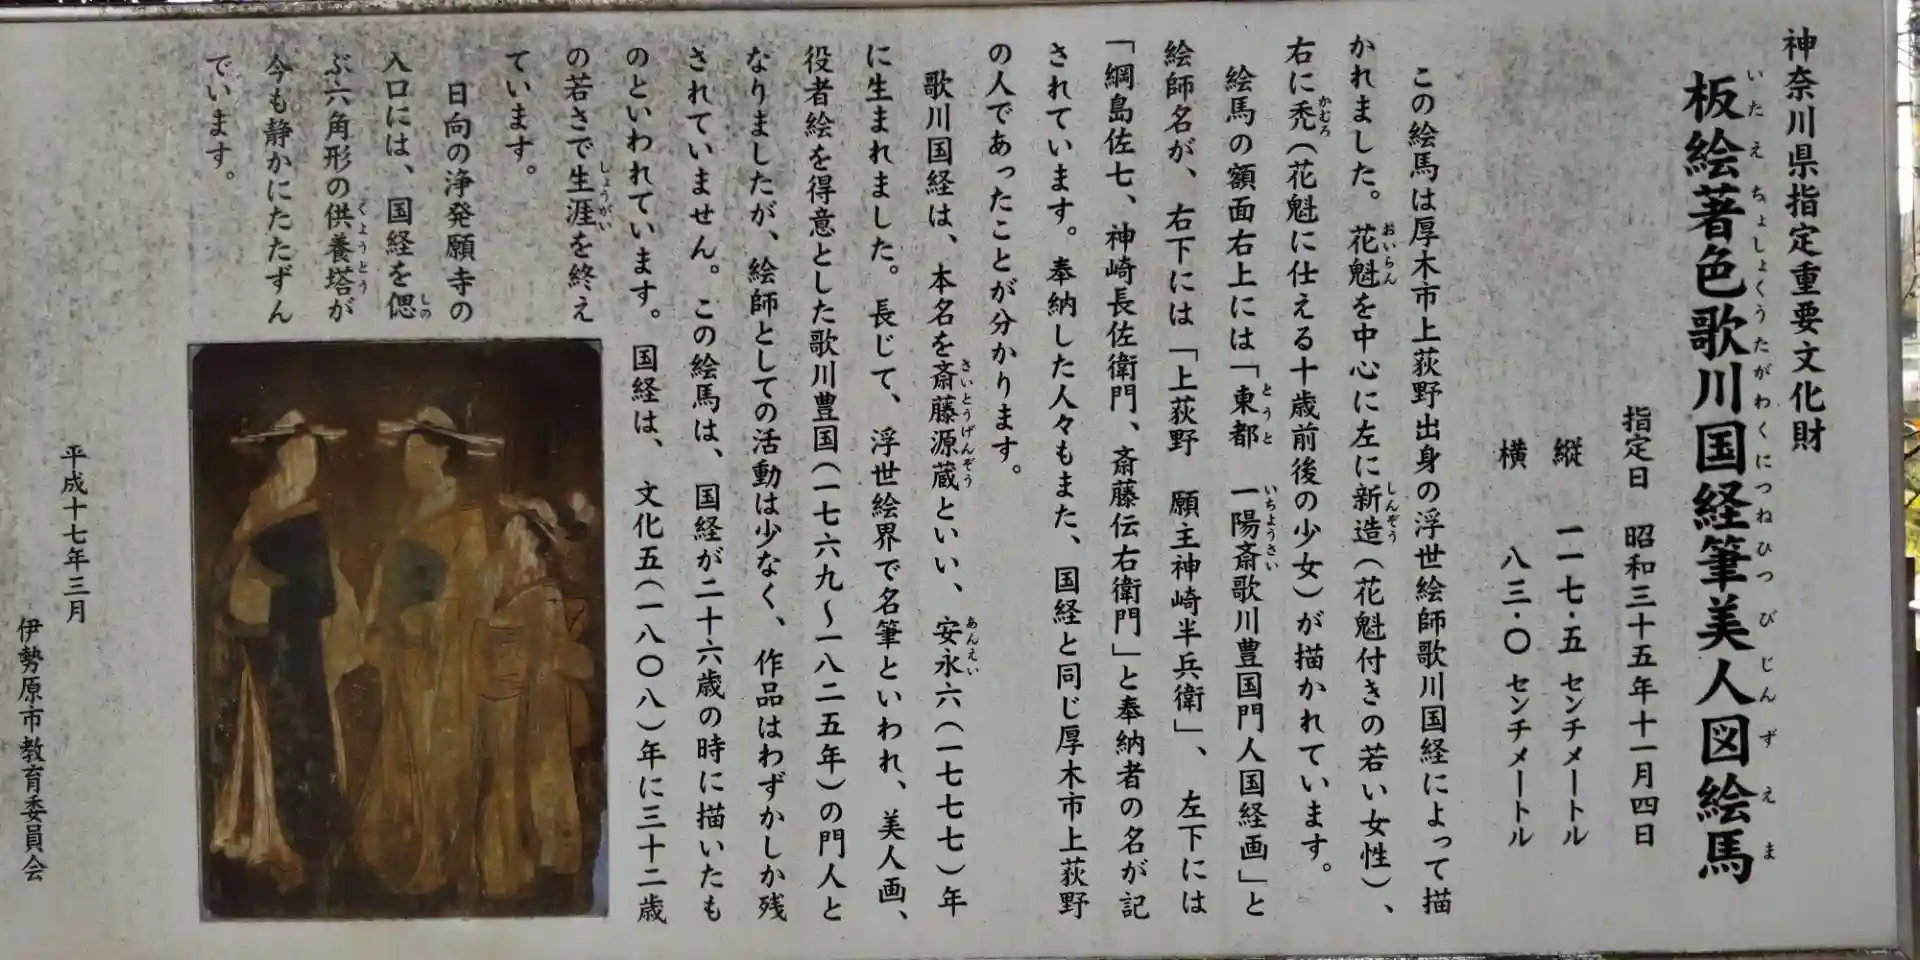 神奈川県指定重要文化財
板絵著色歌川国経筆美人図絵馬
いたえちょしょくうたがわくにつねひつびじんずえま
指定日　昭和三十五年十一月四日
縦　一一七・五センチメートル
横　八三・〇センチメートル
この絵馬は厚木市上荻野出身の浮世絵師歌川国経によって描
かれました。花魁を中心に左に新造（花魁付きの若い女性）、
おいらん　しんぞう
右に禿（花魁に仕える十歳前後の少女）が描かれています。
かむろ
絵馬の額面右上には「東都　一陽斎歌川豊国門人国経画」と
とうと　いちようさい
絵師名が、右下には「上荻野　願主神崎半兵衛」、左下には
「綱島佐七、神崎長佐衛門、斎藤伝右衛門」と奉納者の名が記
されています。奉納した人々もまた、国経と同じ厚木市上荻野
の人であったことが分かります。
歌川国経は、本名を斎藤源蔵といい、安永六（一七七七）年
さいとうげんぞう　あんえい
に生まれました。長じて、浮世絵界で名筆といわれ、美人画、
役者絵を得意とした歌川豊国（一七六九～一八二五年）の門人と
なりましたが、絵師としての活動は少なく、作品はわずかしか残
されていません。この絵馬は、国経が二十六歳の時に描いたも
のといわれています。国経は、文化五（一八〇八）年に三十二歳
の若さで生涯を終え
しょうがい
ています。
日向の浄発願寺の
入口には、国経を偲
しの
ぶ六角形の供養塔が
くようとう
今も静かにたたずん
でいます。
平成十七年三月
伊勢原市教育委員会